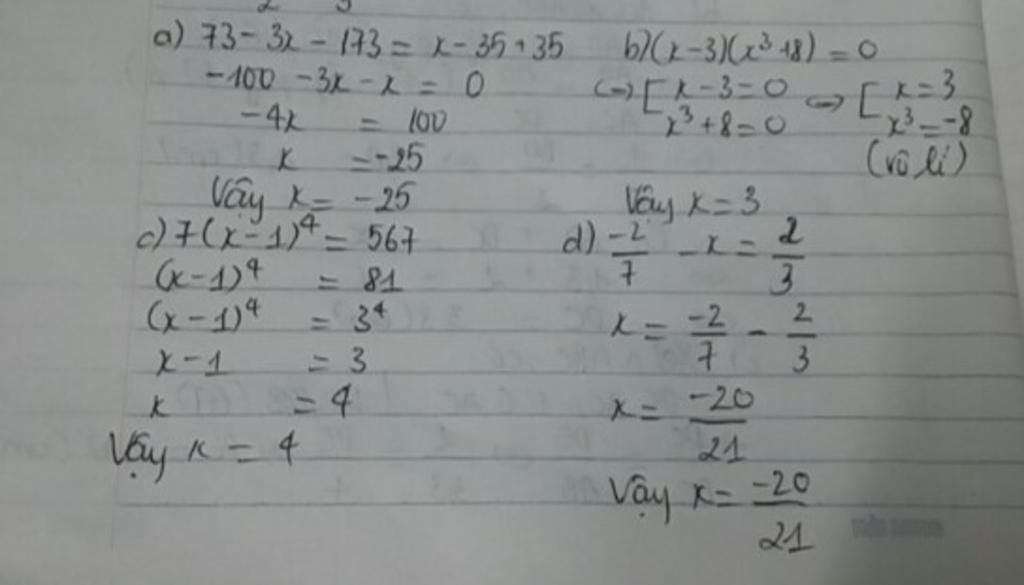 a) 73 - 3x - 173 = x - 35 + 35
-100 - 3x - x = 0
-4x = 100
x = -25
Vậy x = -25
b) (x - 3)(x³ + 8) = 0
<-> [ x - 3 = 0 <-> [ x = 3
x³ + 8 = 0 x³ = -8
(vô lí)
Vậy x = 3
c) 7(x - 1)⁴ = 567
(x - 1)⁴ = 81
(x - 1)⁴ = 3⁴
x - 1 = 3
x = 4
Vậy x = 4
d) -2/7 - x = 2/3
x = -2/7 - 2/3
x = -20/21
Vậy x = -20/21